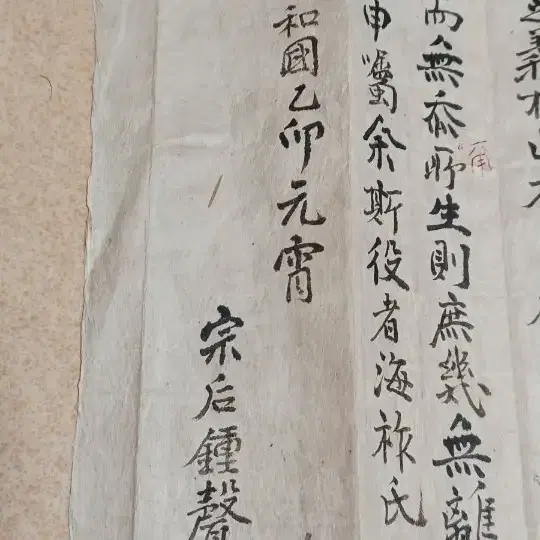 而無忝所生則庶幾無離
申囑余斯役者海祚氏
和國乙卯元宵
宗后鍾聲